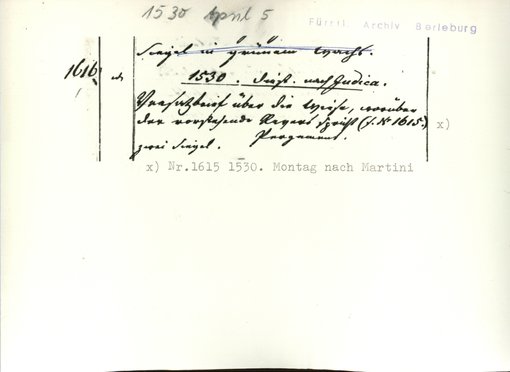 1530 April 5
Fürstl. Archiv Berleburg
Siegel in grünem Wachs.
1616
1530. Dienst. nach Judica.
Versatzbrief über die Wiese, worüber
der vorstehende Revers spricht (s. Nr 1615.) x)
zwei Siegel. Pergament.
x) Nr.1615 1530. Montag nach Martini